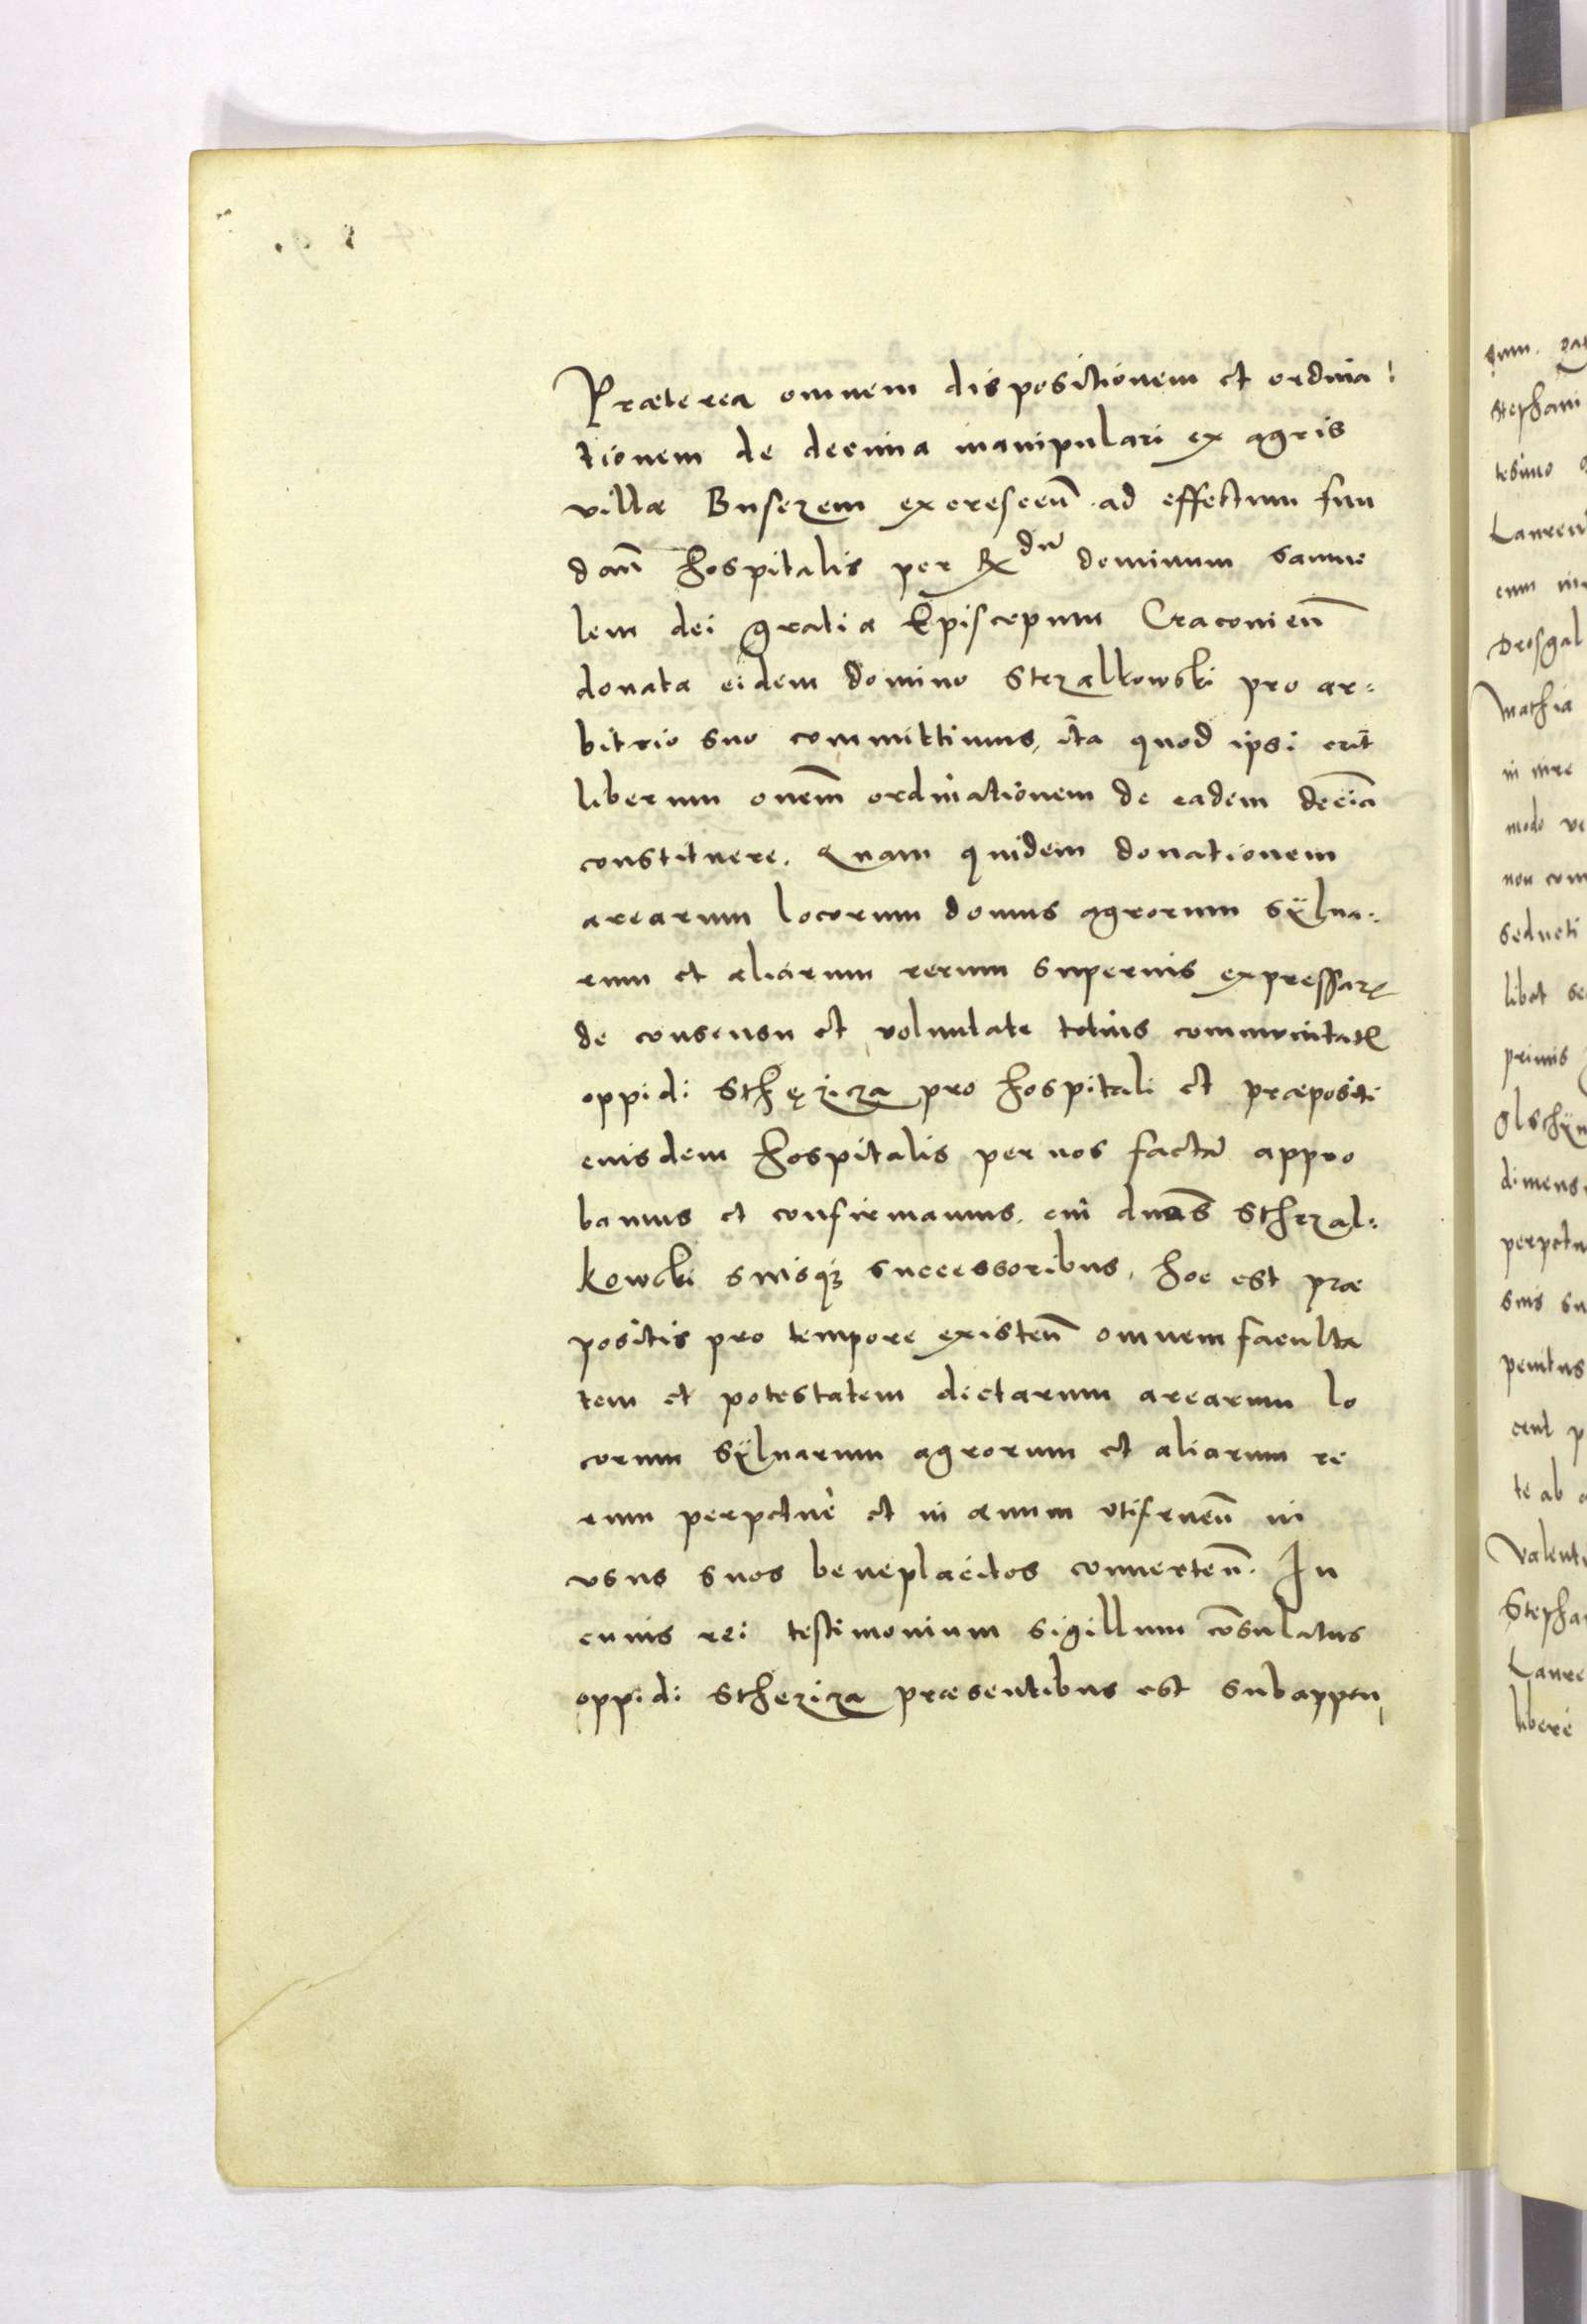 Præterea omnem dispositionem et ordina:
tionem de decima manipulari ex agris
villæ Busczem excrescen̄ ad effectum fun
dan̄ hospitalis per Rdū dominum Samue
lem dei gratia Episcopum Cracovien̄
donata eidem domino Strzalkowski pro ar:
bitrio suo committimus, ita quod ipsi erit
liberum oñem ordinationem de eadem decīa
constituere. Quam quidem donationem
arearum locorum domus agrorum sÿlua:
rum et aliarum rerum superius expressarꝝ
de consensu et voluntate totius communitatꝭ
oppidi Sthęzicza pro hospitali et præpositi
eiusdem hospitalis per nos factā appro
bamus et confirmamus. eīn
kowski suisqꝫ successoribus, hoc est præ
positis pro tempore existen̄ omnem faculta
tem et potestatem dictarum arearum lo
corum sÿluarum agrorum et aliarum re
rum perpetuè et in æuum utifruen̄ in
vsus suos beneplacitos conuerten̄. In
cuius rei testimonium sigillum cōsulatus
oppidi Sthezicza præsentibus est subappen
Stephani
Lauren
Mathia
in iure
modo
non com
seducti
libet
primis
dimens
perpetu
penitus
te ab
Valent
Stepha
Laure
liberè